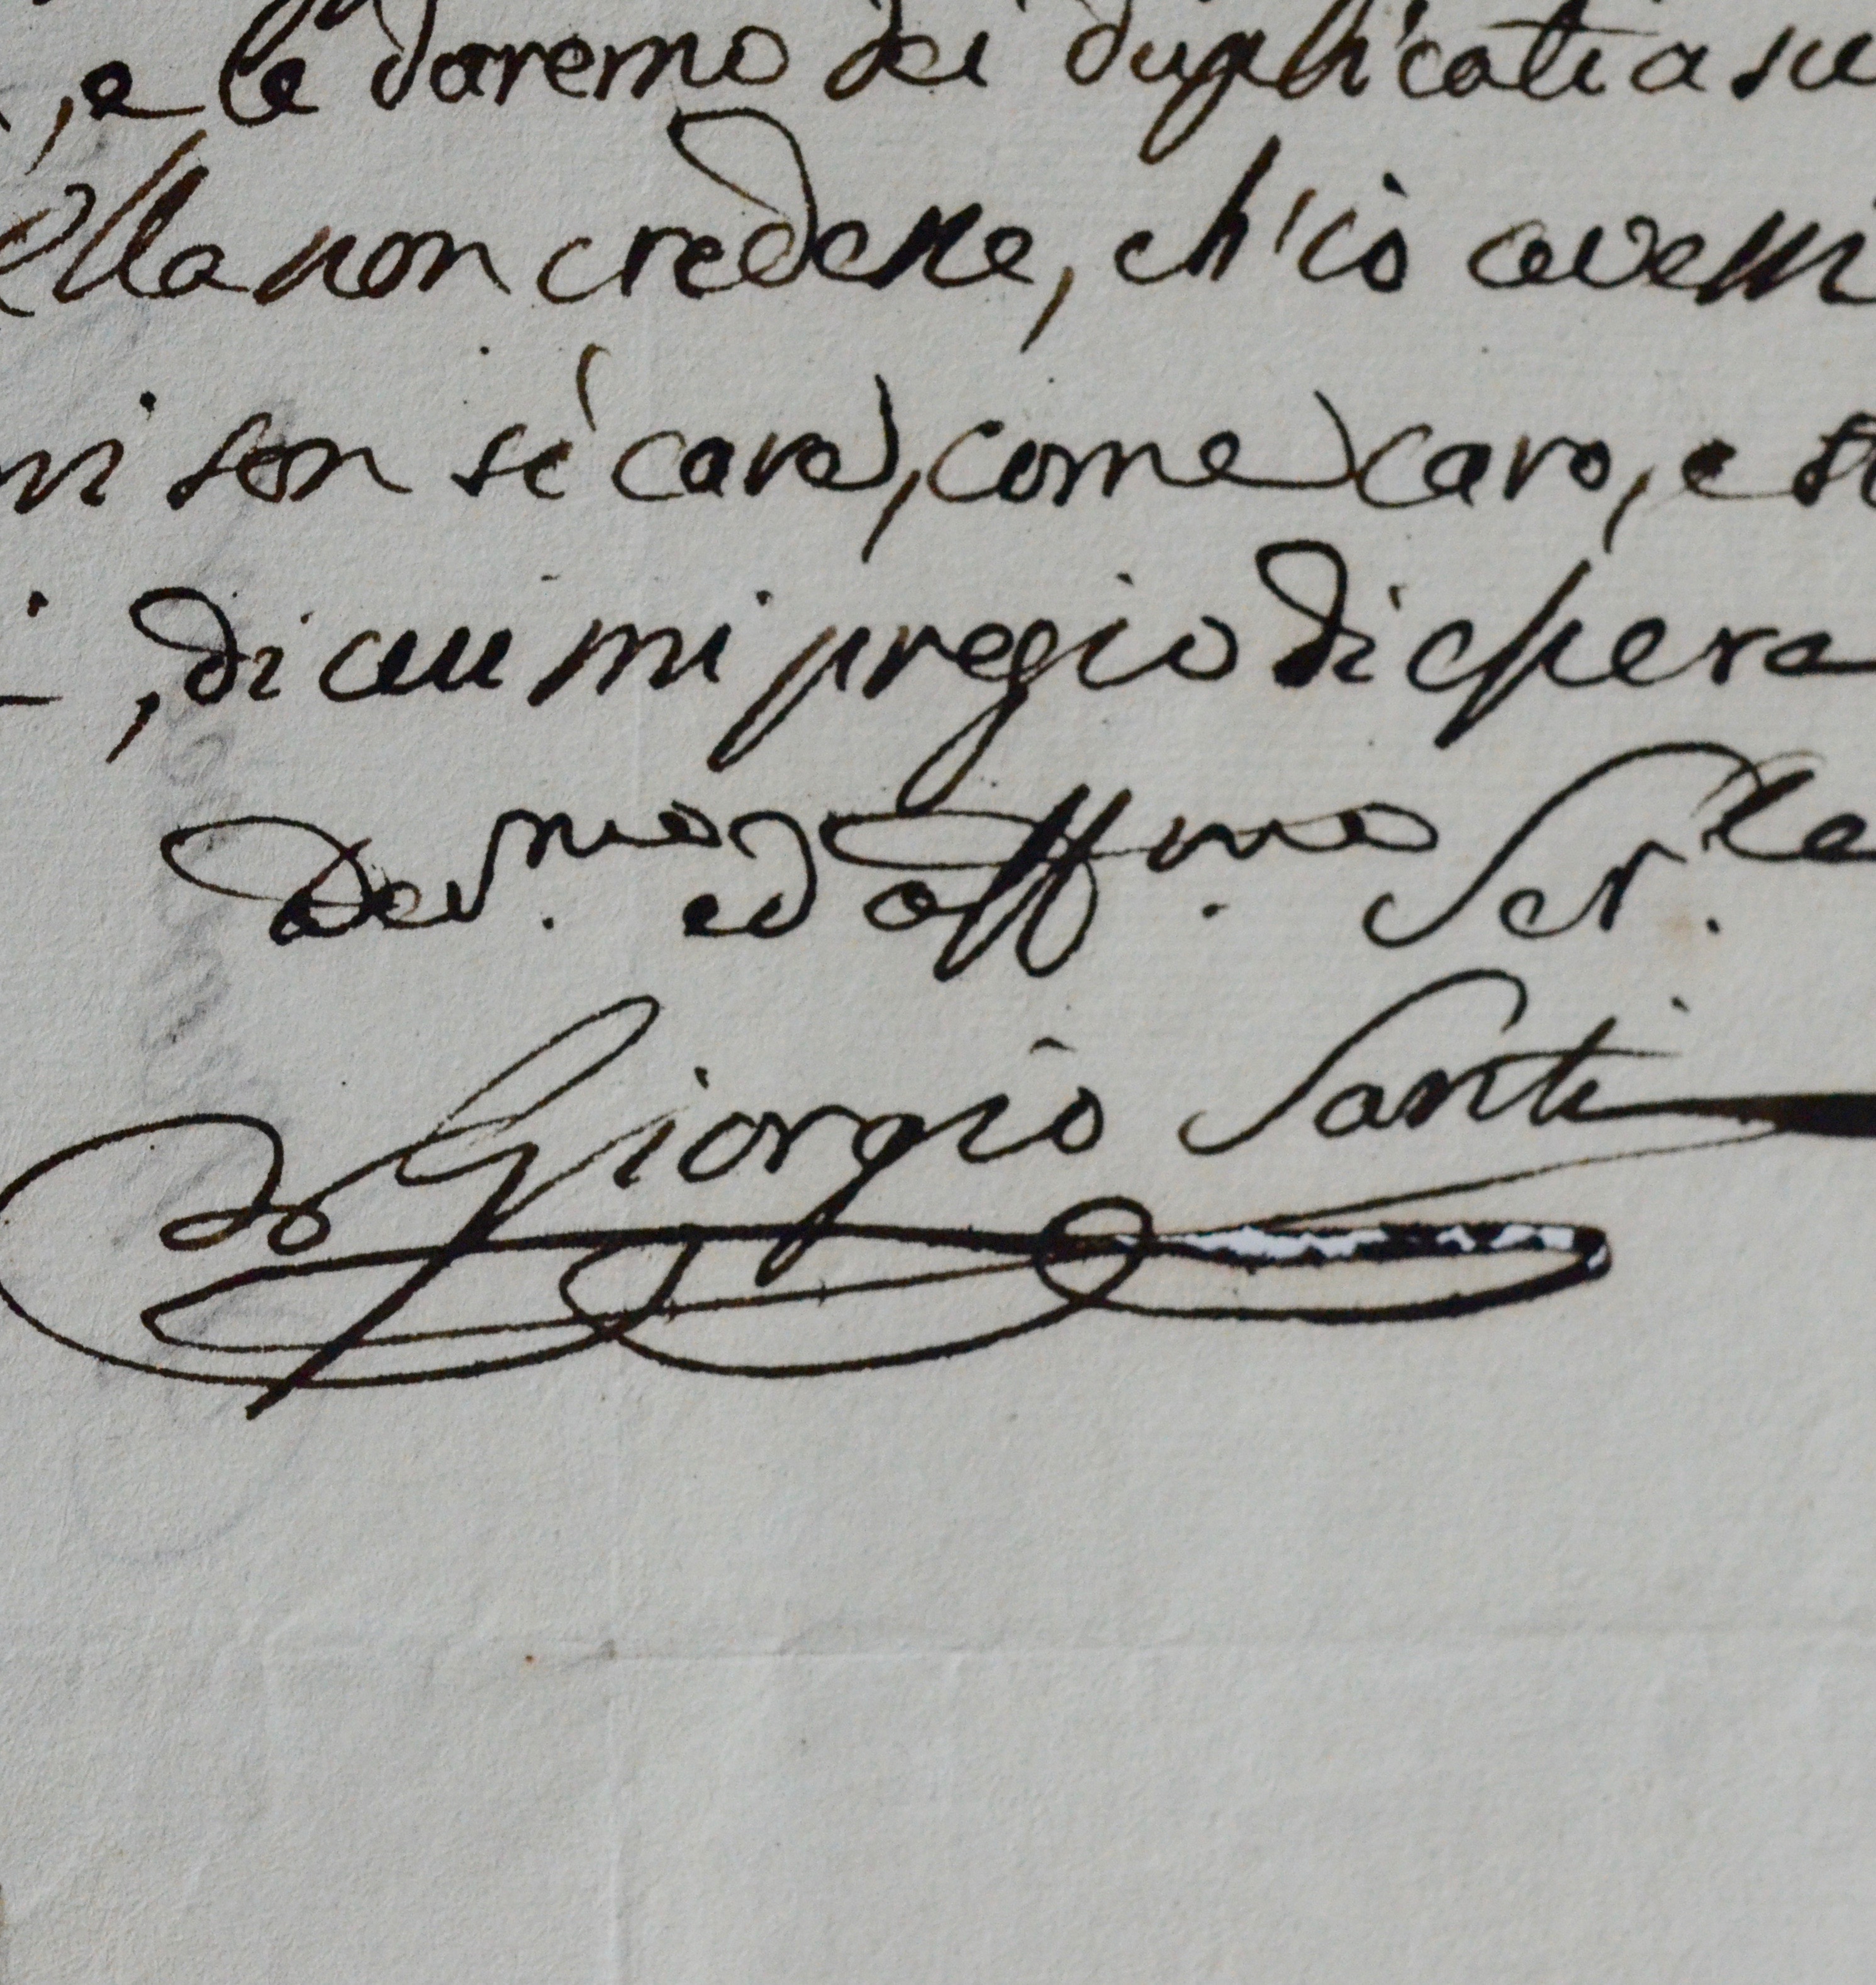 , e le daremo dei duplicati a su
Ella non credesse, ch'io avessi
mi son sì care, come caro, e st
, di cui mi pregio di essere
Dev.mo ed aff.mo Ser.le
Giorgio Santi